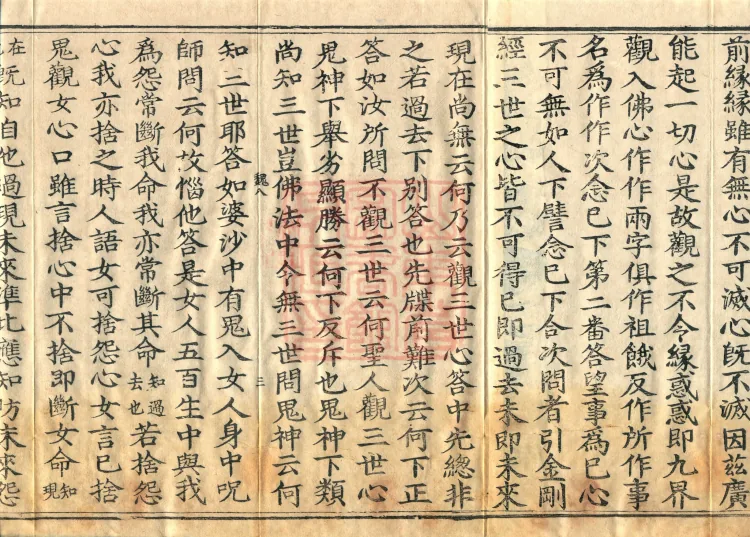 前縁縁雖有無心不可滅心旣不滅因茲廣
能起一切心是故觀之不令縁惑惑即九界
觀入佛心作作兩字俱作祖餓反作所作事
名爲作作次念已下第二番答望事爲已心
不可無如人下譬念已下合次問者引金剛
經三世之心皆不可得已即過去未即未來
現在尚無云何乃云觀三世心答中先總非
之若過去下別答也先牒前難次云何下正
答如汝所問不觀三世云何聖人觀三世心
鬼神下舉劣顯勝云何下反斥也鬼神下類
尚知三世豈佛法中今無三世問鬼神云何
魏八
三
知三世耶答如婆沙中有鬼入女人身中呪
師問云何故惱他答是女人五百生中與我
爲怨常斷我命我亦常斷其命知過去也若捨怨
心我亦捨之時人語女可捨怨心女言已捨
鬼觀女心口雖言捨心中不捨即斷女命知現
在旣知自他過現未來準比應知妨未來怨